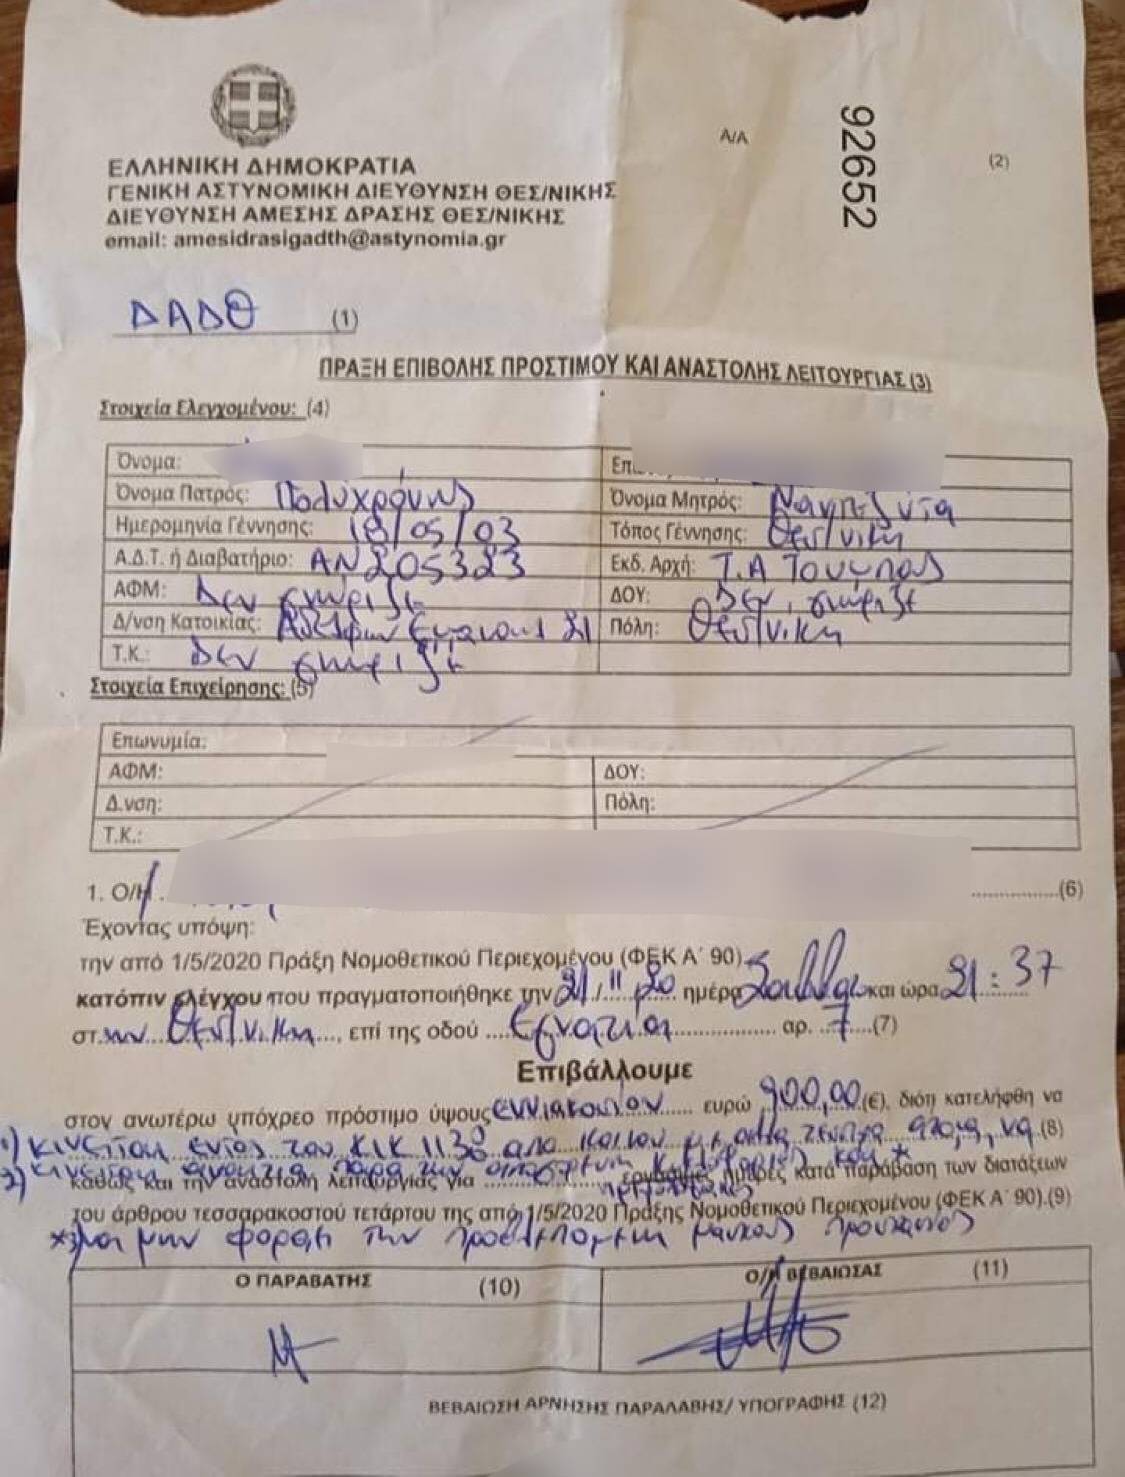 Α/Α
92652
(2)
ΕΛΛΗΝΙΚΗ ΔΗΜΟΚΡΑΤΙΑ
ΓΕΝΙΚΗ ΑΣΤΥΝΟΜΙΚΗ ΔΙΕΥΘΥΝΣΗ ΘΕΣ/ΝΙΚΗΣ
ΔΙΕΥΘΥΝΣΗ ΑΜΕΣΗΣ ΔΡΑΣΗΣ ΘΕΣ/ΝΙΚΗΣ
email: amesidrasigadth@astynomia.gr
ΔΑΔΘ (1)
ΠΡΑΞΗ ΕΠΙΒΟΛΗΣ ΠΡΟΣΤΙΜΟΥ ΚΑΙ ΑΝΑΣΤΟΛΗΣ ΛΕΙΤΟΥΡΓΙΑΣ (3)
Στοιχεία Ελεγχομένου: (4)
Όνομα:
Όνομα Πατρός: Πολυχρόνης Όνομα Μητρός:
Ημερομηνία Γέννησης: 18/05/03 Τόπος Γέννησης: Θεσ/νίκη
Α.Δ.Τ. ή Διαβατήριο: ΑΝ205323 Εκδ. Αρχή: Τ.Α Τούμπας
ΑΦΜ: Δεν γνωρίζει ΔΟΥ: Δεν γνωρίζει
Δ/νση Κατοικίας: 21 Πόλη: Θεσ/νίκη
Τ.Κ.: Δεν γνωρίζει
Στοιχεία Επιχείρησης: (5)
Επωνυμία:
ΑΦΜ: ΔΟΥ:
Δ.νση: Πόλη:
Τ.Κ.:
1. Ο/Η (6)
Έχοντας υπόψη:
την από 1/5/2020 Πράξη Νομοθετικού Περιεχομένου (ΦΕΚ Α΄ 90)
κατόπιν ελέγχου που πραγματοποιήθηκε την 21/11/20 ημέρα Σάββατο και ώρα 21:37
στ.ην Θεσ/νίκη, επί της οδού Εγνατία αρ. 7 (7)
Επιβάλλουμε
στον ανωτέρω υπόχρεο πρόστιμο ύψους εννιακοσίων ευρώ 900,00 (€). διότι κατελήφθη να
1) κινείται εντός του από κοινού με (8)
2) κινείται
καθώς και την αναστολή λειτουργίας για εργάσιμες ημέρες κατά παράβαση των διατάξεων
του άρθρου τεσσαρακοστού τετάρτου της από 1/5/2020 Πράξης Νομοθετικού Περιεχομένου (ΦΕΚ Α΄ 90).(9)
να μην φοράει την
Ο ΠΑΡΑΒΑΤΗΣ (10) Ο/Η ΒΕΒΑΙΩΣΑΣ (11)
ΒΕΒΑΙΩΣΗ ΑΡΝΗΣΗΣ ΠΑΡΑΛΑΒΗΣ/ ΥΠΟΓΡΑΦΗΣ (12)